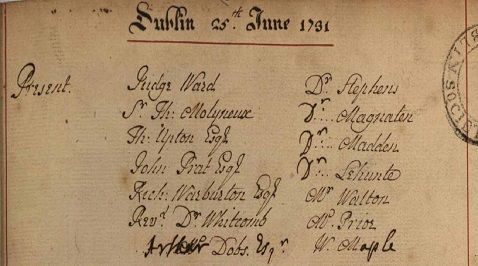 Dublin 25th June 1731
Present. Judge Ward Dr Stephens
Sr Th: Molyneux Dr... Magnaten
Th: Upton Esqr Dr... Madden
John Prat Esqr Dr... Lehunte
Rich: Warburton Esqr Mr Walton
Revd. Dr Whitcomb Mr Prior
Arthur Dobs. Esqr W. Maple